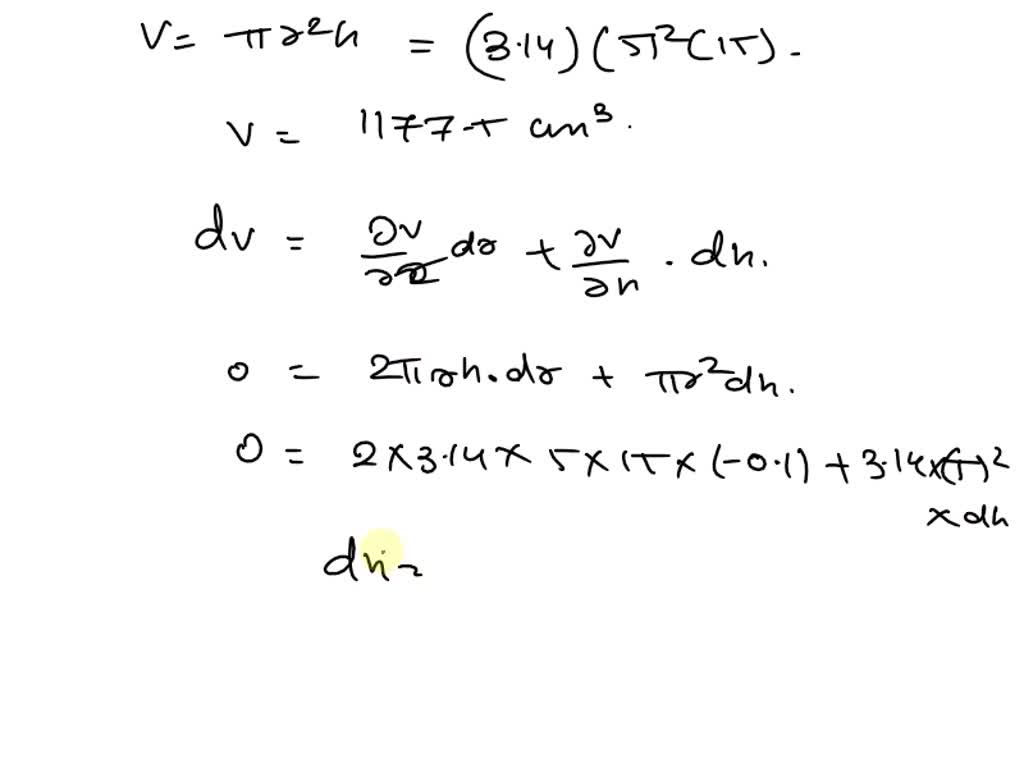 V = πr²h = (3.14)(5)²(15).
V = 1177.5 cm³.
dv = ∂v/∂r dr + ∂v/∂h . dh.
0 = 2πrh.dr + πr²dh.
0 = 2×3.14×5×15×(-0.1) + 3.14×(5)²
× dh
dh =